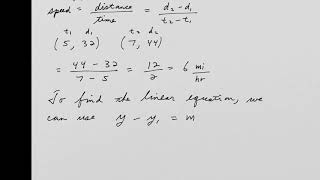 speed = distance / time = d₂ - d₁ / t₂ - t₁
t₁ d₁ t₂ d₂
(5, 32) (7, 44)
= 44 - 32 / 7 - 5 = 12 / 2 = 6 mi / hr
To find the linear equation, we
can use y - y₁ = m